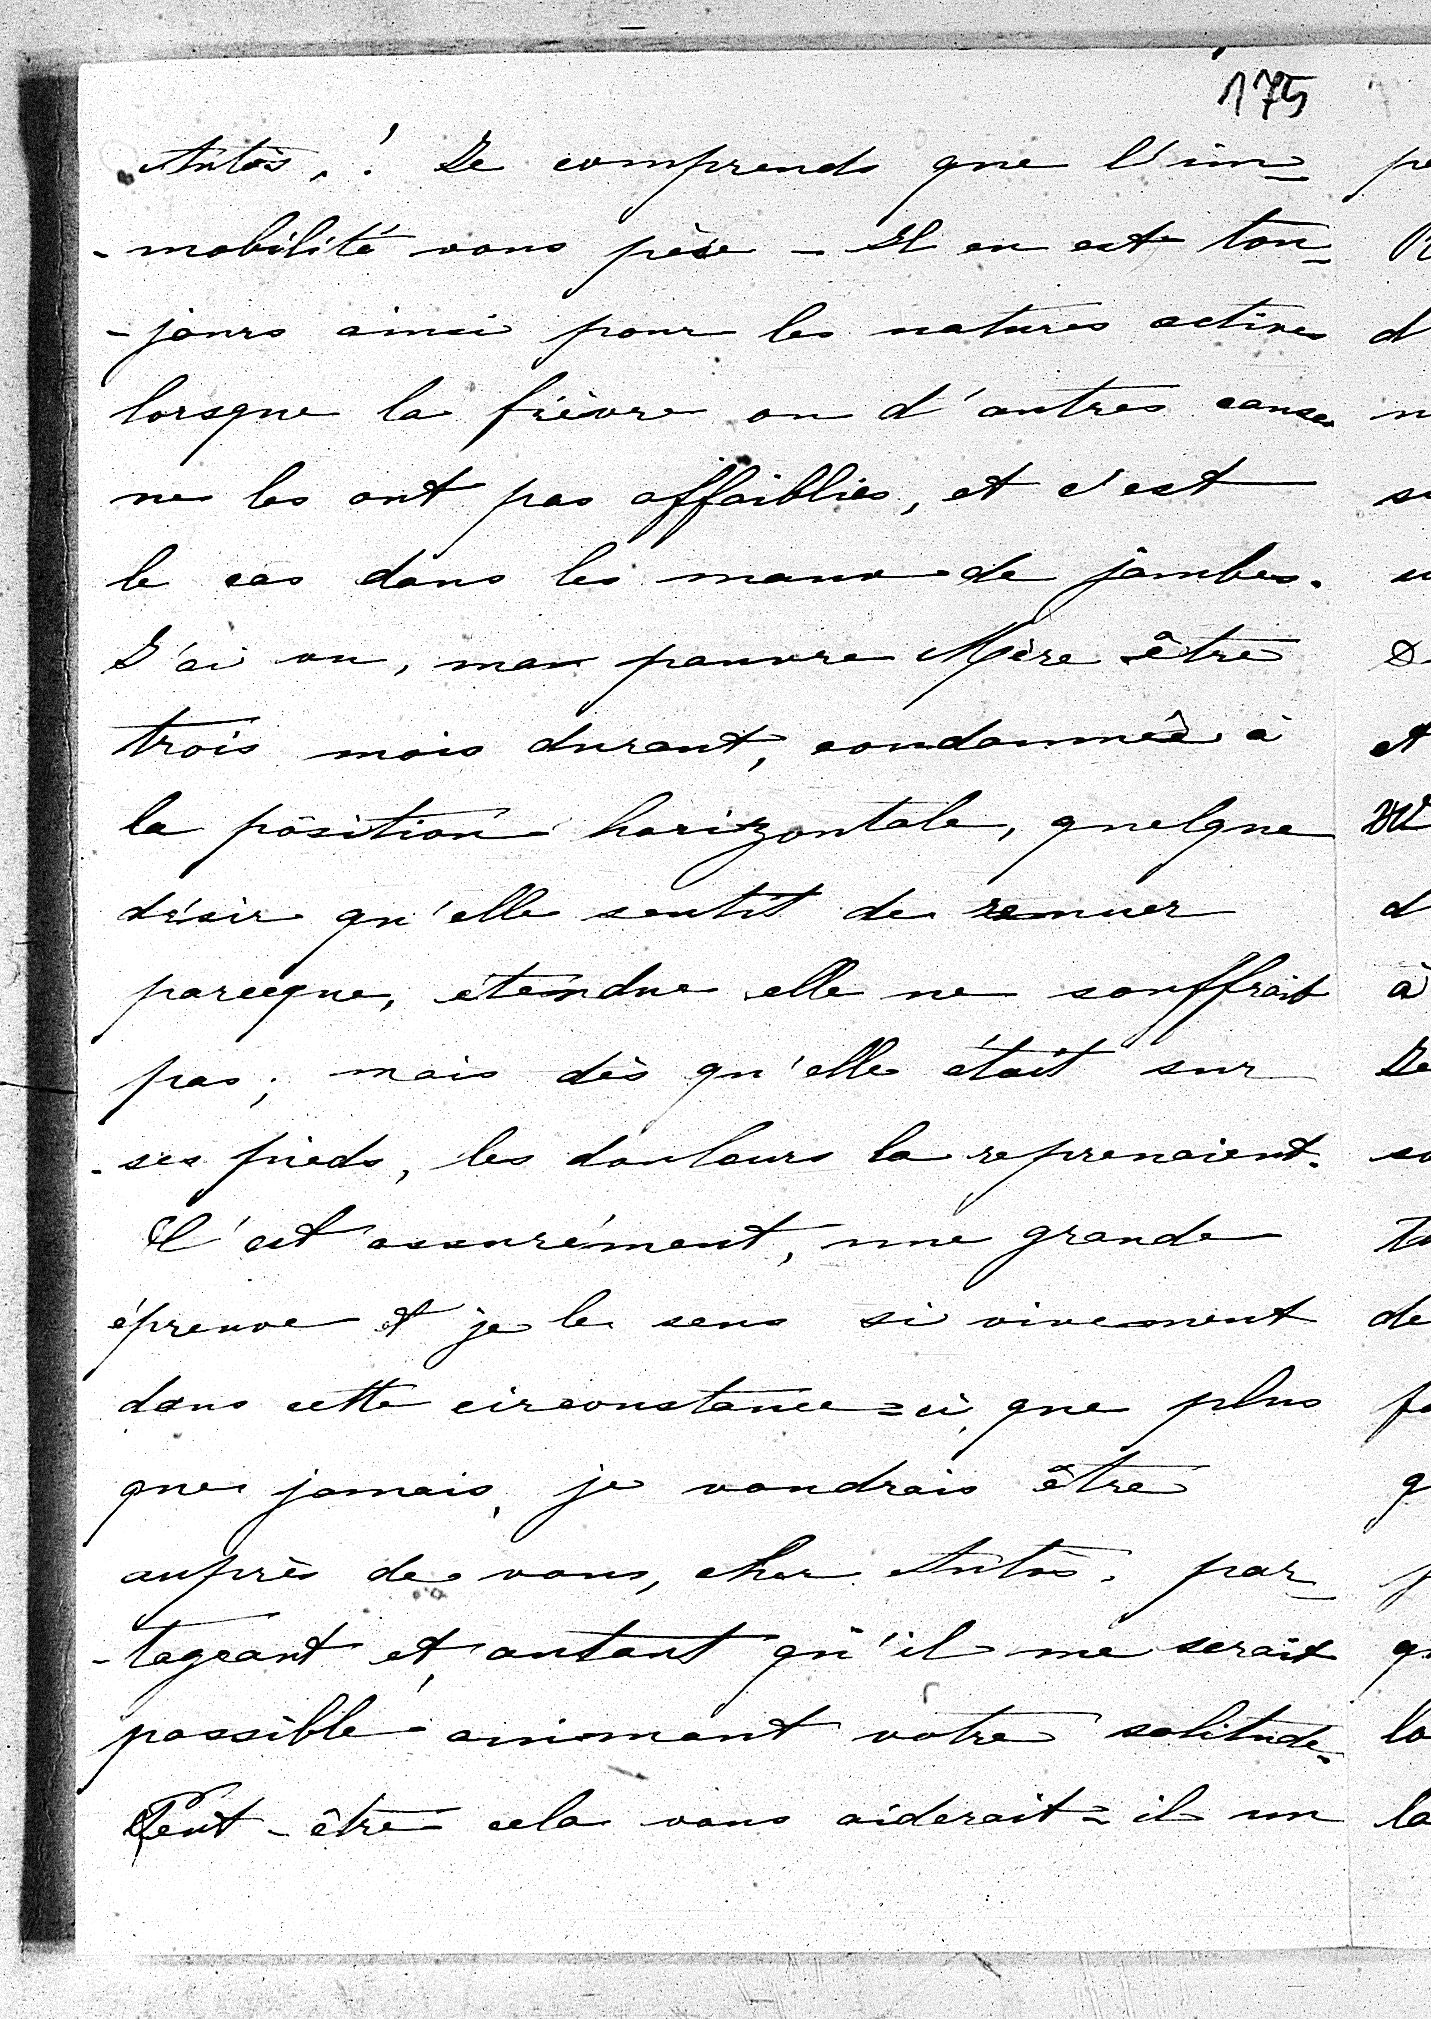 175
Antòs,! Je comprends que l'im-
-mobilité vous pèse - Il en est tou-
-jours ainsi pour les natures actives
lorsque la fièvre ou d'autres causes
ne les ont pas affaiblies, et c'est
le cas dans les maux de jambes.
J'ai vu, ma pauvre Mère être
trois mois durant, condamnée à
la position horizontale, quelque
désir qu'elle sentit de remuer
parceque, étendue elle ne souffrait
pas; mais dès qu'elle était sur
ses pieds, les douleurs la reprenaient.
C'est assurément, une grande
épreuve et je le sens si vivement
dans cette circonstance=ci, que plus
que jamais, je voudrais être
auprès de vous, cher Antòs, par-
-tageant et, autant qu'il me serait
possible animant votre solitude.
Peut-être cela vous aiderait=il un